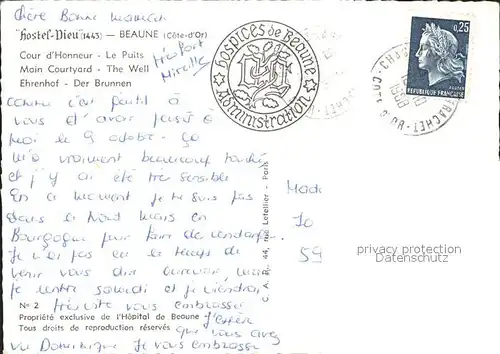 chère Bonne maman
"Hostel-Dieu" (1443) — BEAUNE (Côte-d'Or)
Cour d'Honneur - Le Puits
Main Courtyard - The Well
Ehrenhof - Der Brunnen
Mireille
HOSPICES de BEAUNE
Administration
0,25
REPUBLIQUE FRANÇAISE
comme c'est gentil à
vous d'avoir pensé à
moi le 9 octobre. ça
m'a vraiment beaucoup touché
et j'y ai été très sensible
En ce moment je ne suis pas
dans le Nord mais en
Bourgogne pour faire les vendanges
Je n'ai pas eu le temps de
venir vous dire aurevoir, mais
je rentre samedi et je viendrai
vous embrasser
J'espère
que vous avez
vu Dominique Je vous embrasse
Nº 2
Propriété exclusive de l'Hôpital de Beaune
Tous droits de reproduction réservés
C. A. P. - 44, rue Letellier - Paris
Made
10
59
privacy protection
Datenschutz